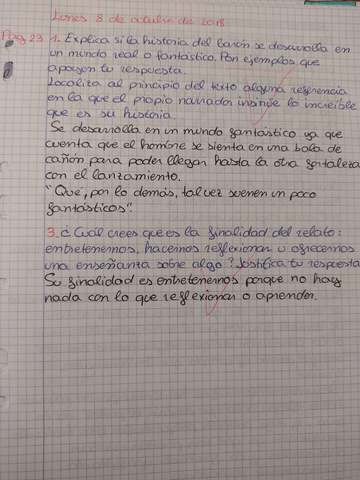 Lunes 8 de octubre de 2018
Pag 23 1. Explica si la historia del barón se desarrolla en
un mundo real o fantástico. Pon ejemplos que
apoyen tu respuesta.
Localiza al principio del texto alguna referencia
en la que el propio narrador insinúe lo increíble
que es su historia.
Se desarrolla en un mundo fantástico ya que
cuenta que el hombre se sienta en una bola de
cañón para poder llegar hasta la otra fortaleza
con el lanzamiento.
"Que, por lo demás, tal vez suenen un poco
fantásticos".
3. ¿Cuál crees que es la finalidad del relato:
entretenernos, hacernos reflexionar u ofrecernos
una enseñanza sobre algo? Justifica tu respuesta
Su finalidad es entretenernos porque no hay
nada con lo que reflexionar o aprender.